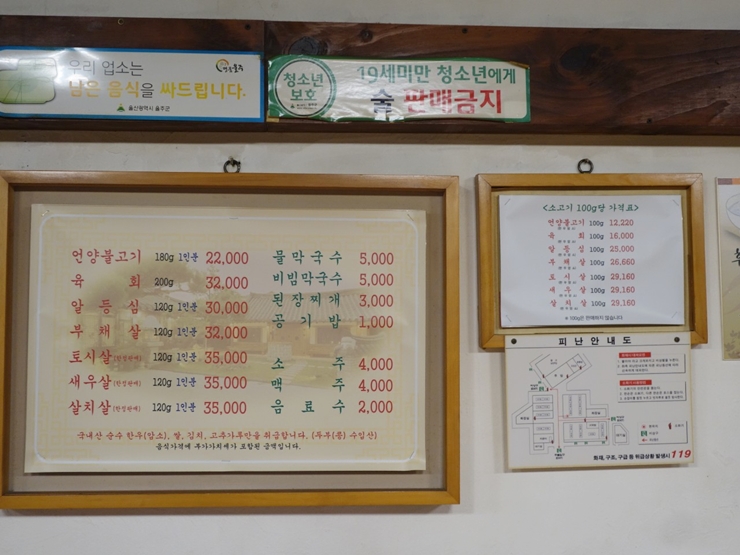 우리 업소는
남은 음식을 싸드립니다.
울산광역시 울주군
청소년
보호
19세미만 청소년에게
술 판매금지
언양불고기 180g 1인분 22,000
육 회 200g 32,000
알 등 심 120g 1인분 30,000
부 채 살 120g 1인분 32,000
토시살(한정판매) 120g 1인분 35,000
새우살(한정판매) 120g 1인분 35,000
살치살(한정판매) 120g 1인분 35,000
물막국수 5,000
비빔막국수 5,000
된장찌개 3,000
공기밥 1,000
소 주 4,000
맥 주 4,000
음 료 수 2,000
국내산 순수 한우(암소), 쌀, 김치, 고추가루만을 취급합니다. (두부(콩) 수입산)
음식가격에 부가가치세가 포함된 금액입니다.
<소고기 100g당 가격표>
언양불고기 100g 12,220
육 회 100g 16,000
알 등 심 100g 25,000
부 채 살 100g 26,660
토 시 살 100g 29,160
새 우 살 100g 29,160
살 치 살 100g 29,160
* 100g은 판매하지 않습니다
피 난 안 내 도
화재, 구조, 구급 등 위급상황 발생시 119